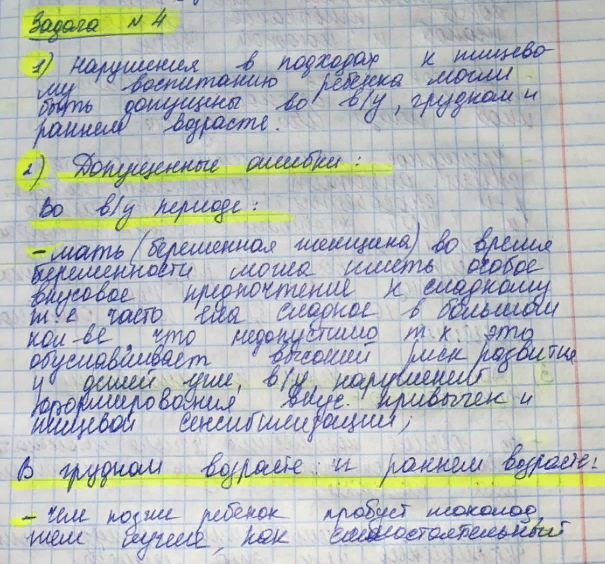 Задача № 4
1) Нарушения в подходах к пищево-
му воспитанию ребенка могли
быть допущены во в/у, грудном и
раннем возрасте.
2) Допущенные ошибки:
Во в/у периоде:
- мать (беременная женщина) во время
беременности могла иметь особое
вкусовое предпочтение к сладкому
т.е часто ела сладкое в большом
кол-ве, что недопустимо т.к. это
обуславливает высокий риск развития
у детей уже, в/у, нарушений
формирования вкус. привычек и
пищевой сенсибилизации;
В грудном возрасте и раннем возрасте:
- чем позже ребенок пробует шоколад
тем лучше, как самостоятельный